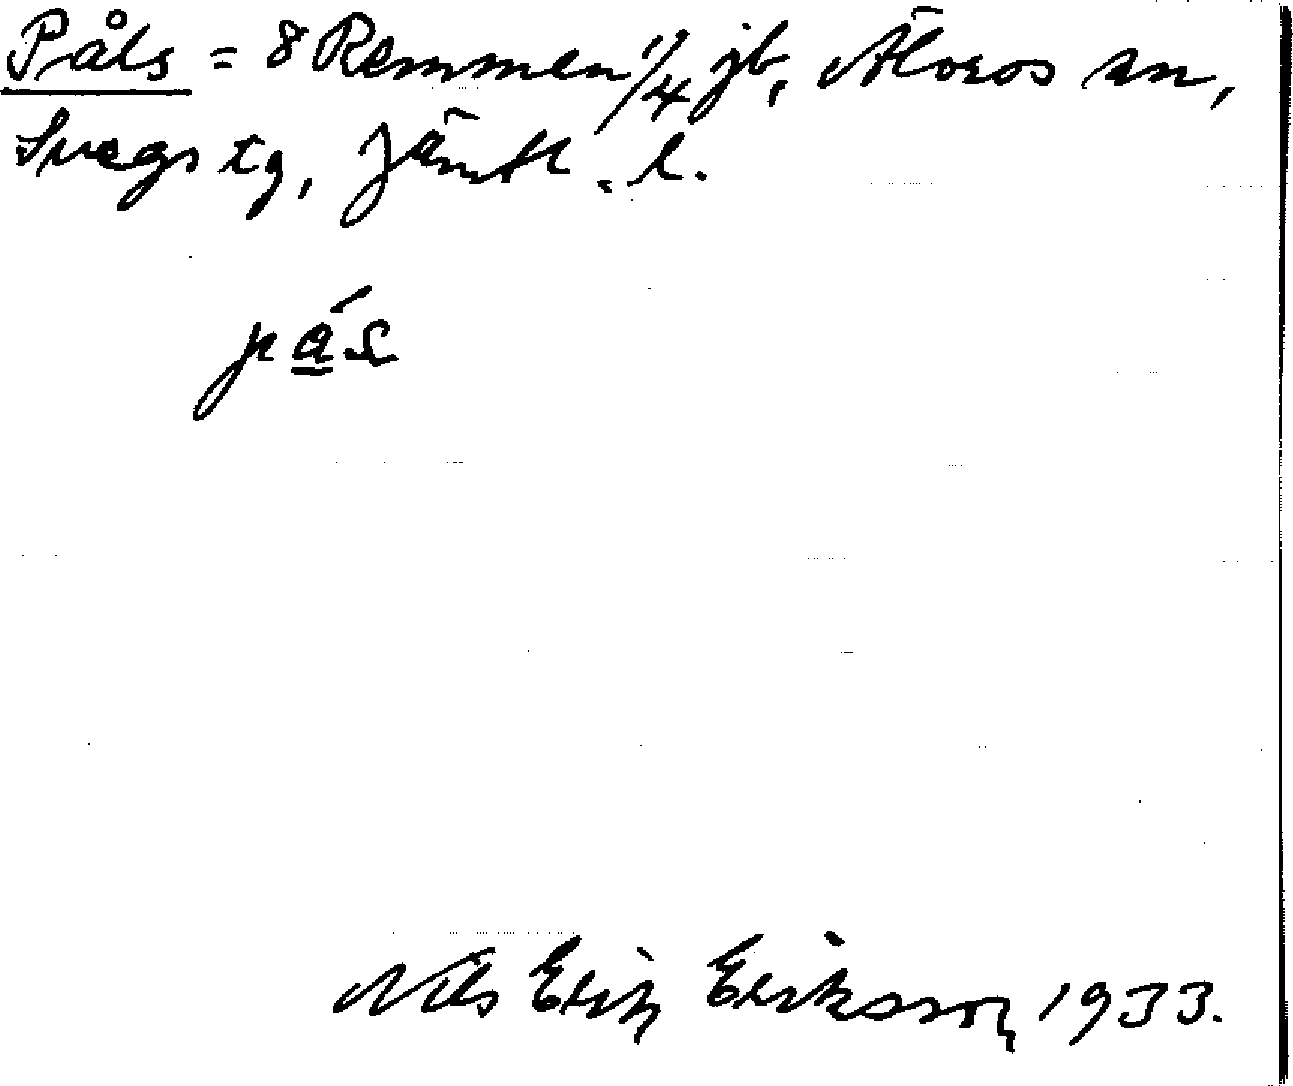 Påls = 8 Remmen 1/4 jb, Älvros sn,
Svegs tg, Jämtl. l.
pás
Nils Erik Eriksson 1933.